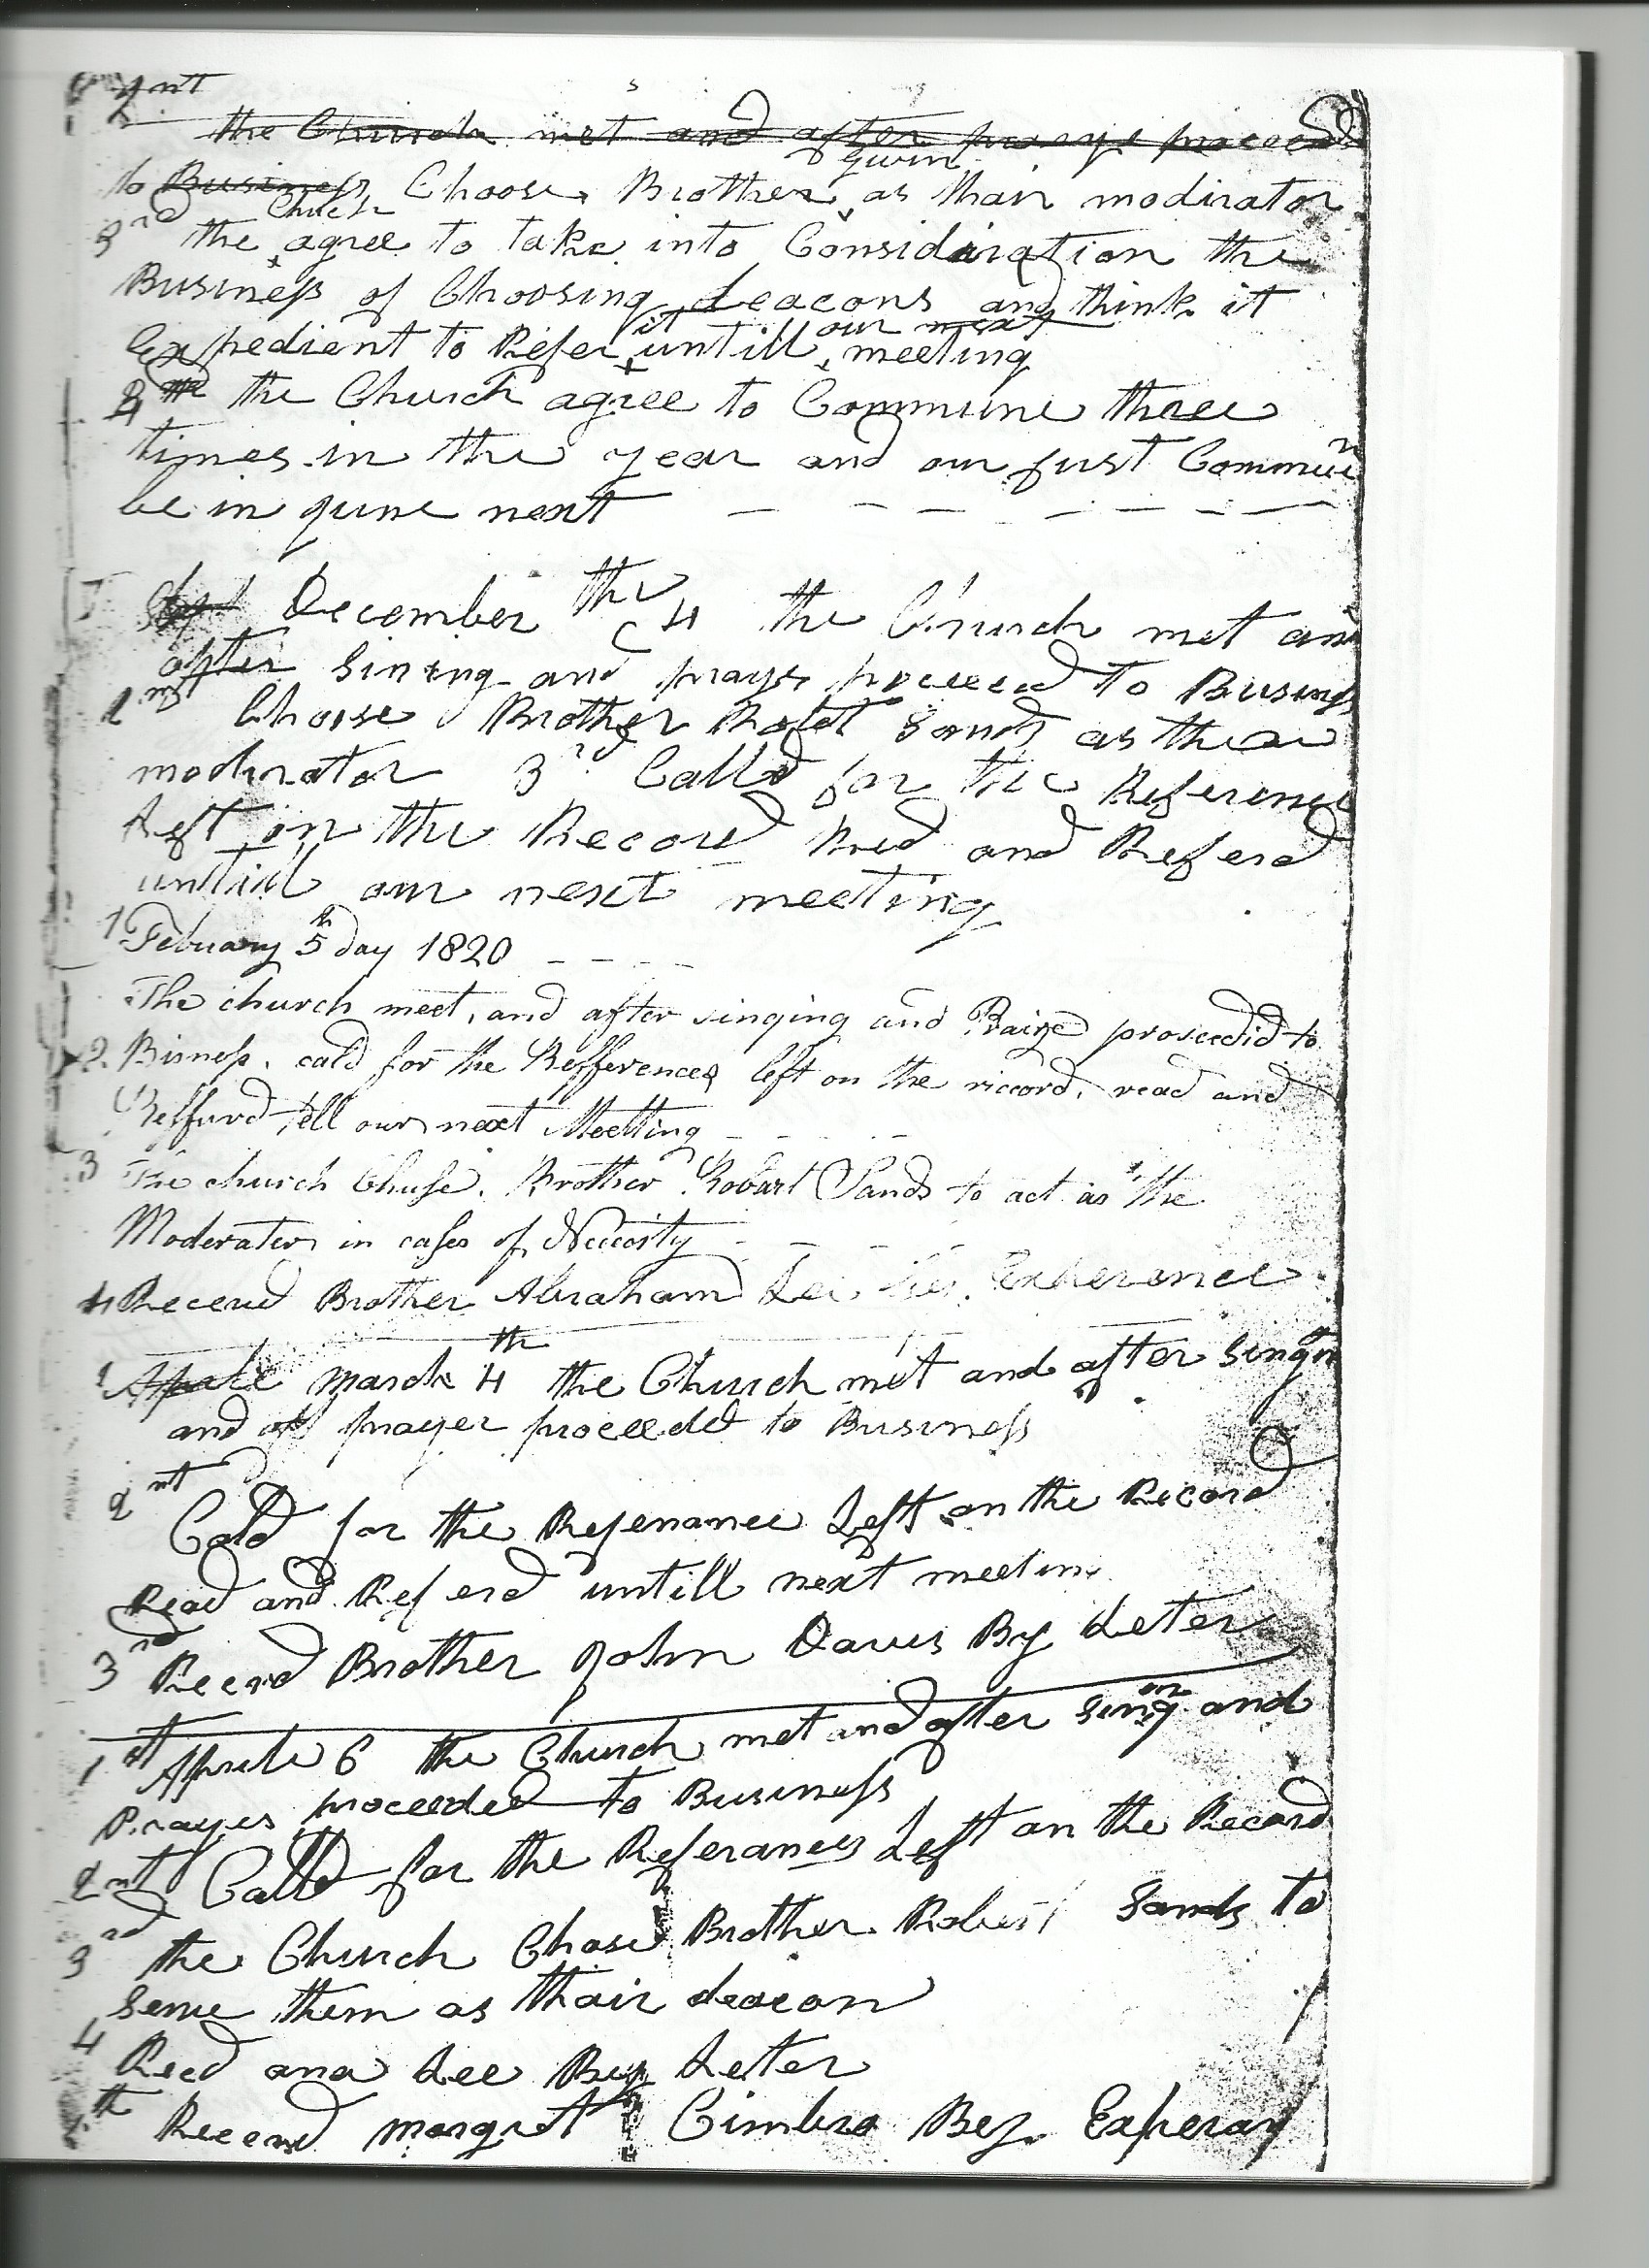 2nt
the Church met and after praye proceed
to Business Choose Brother Gwin as thair moderator
3rd the Church agree to take into Considaration the
Business of Choosing deacons and think it
Expedient to Refer it untill our next meeting
4 the Church agree to Commune three
times in the year and our furst Commun
be in June next
December the 4 the Church met an
after Sining and prayr proceed to Business
2nt Choose Brother Robt Sands as thear
moderator 3rd Calld for the Referenc
Left on the Record Red and Referd
untill our next meeting
1 Febuary 5th day 1820
The church meet, and after singing and Praize proseedid to
2. Bisness. cald for the Refferences left on the riccord, read and
Reffurd tell our next Meetting
3 The church Chuse. Brother Robart Sands to act as the
Moderater in cases of Neccosty
4 Receved Brother Abraham Lee Experence
1 Aprile march 4th the Church met and after Singn
and prayer proceeded to Business
2nt Cald for the Referance Left on the Record
Read and Referd untill next meetin
3rd Receved Brother John Davis By Leter
1st Aprile 6 the Church met and after Singon and
Prayer proceeded to Business
2nt Calld for the Referances Left on the Record
3rd the Church Chose Brother Robert Sands to
Serve them as thair deacon
4 Recd ana Lee By Leter
5th Receved margret Cimbro By Experay